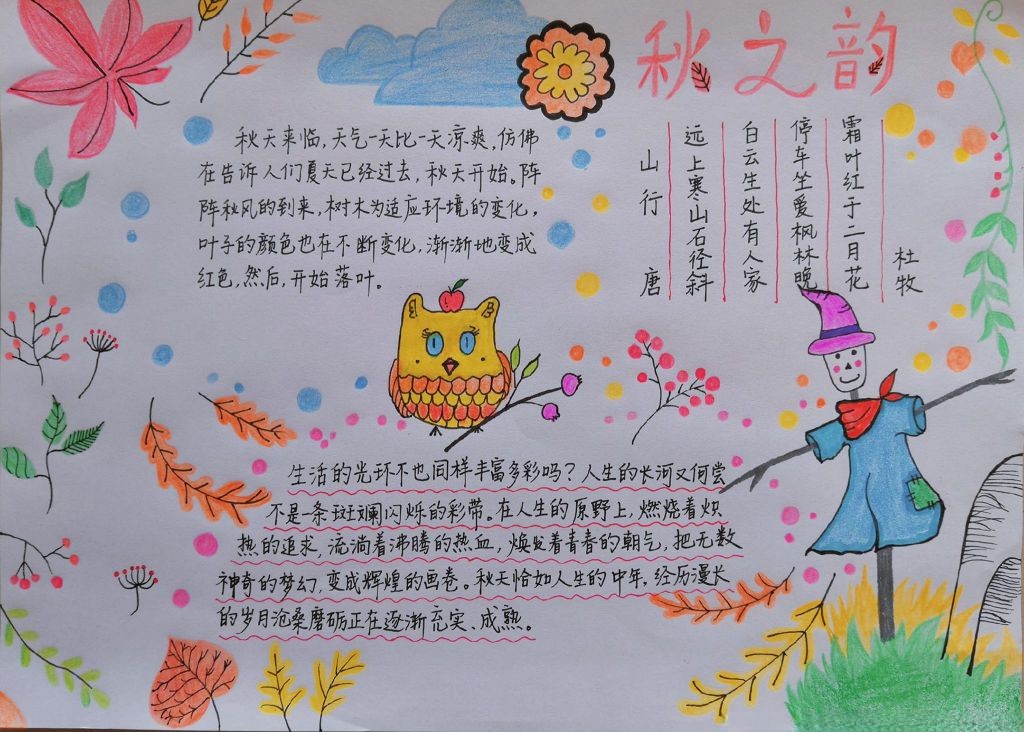 秋之韵
秋天来临,天气一天比一天凉爽,仿佛
在告诉人们夏天已经过去,秋天开始。阵
阵秋风的到来,树木为适应环境的变化,
叶子的颜色也在不断变化,渐渐地变成
红色,然后,开始落叶。
山行 唐
远上寒山石径斜
白云生处有人家
停车坐爱枫林晚
霜叶红于二月花
杜牧
生活的光环不也同样丰富多彩吗?人生的长河又何尝
不是一条斑斓闪烁的彩带。在人生的原野上,燃烧着炽
热的追求,流淌着沸腾的热血,焕发着青春的朝气,把无数
神奇的梦幻,变成辉煌的画卷。秋天恰如人生的中年,经历漫长
的岁月沧桑磨砺正在逐渐充实、成熟。